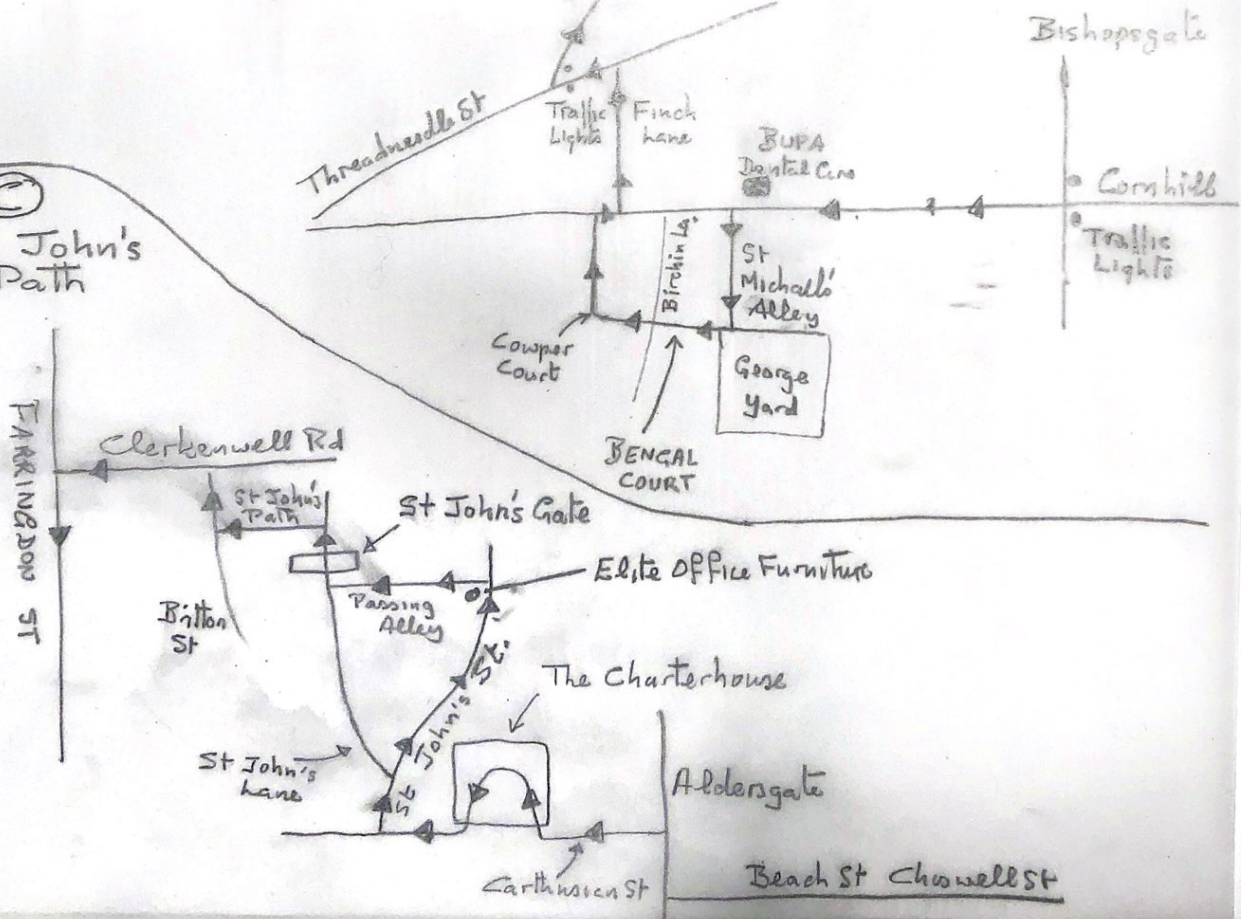 Bishopsgate
Threadneedle St
Traffic
Lights
Finch
Lane
BUPA
Dental Care
Cornhill
Traffic
Lights
John's
Path
Birchin La.
St
Michall's
Alley
Cowper
Court
George
Yard
BENGAL
COURT
FARRINGDON ST
Clerkenwell Rd
St John's
Path
St John's Gate
Elite Office Furniture
Passing
Alley
Britton
St
St John's St.
The Charterhouse
St John's
Lane
Aldersgate
Carthusien St
Beach St Chiswell St